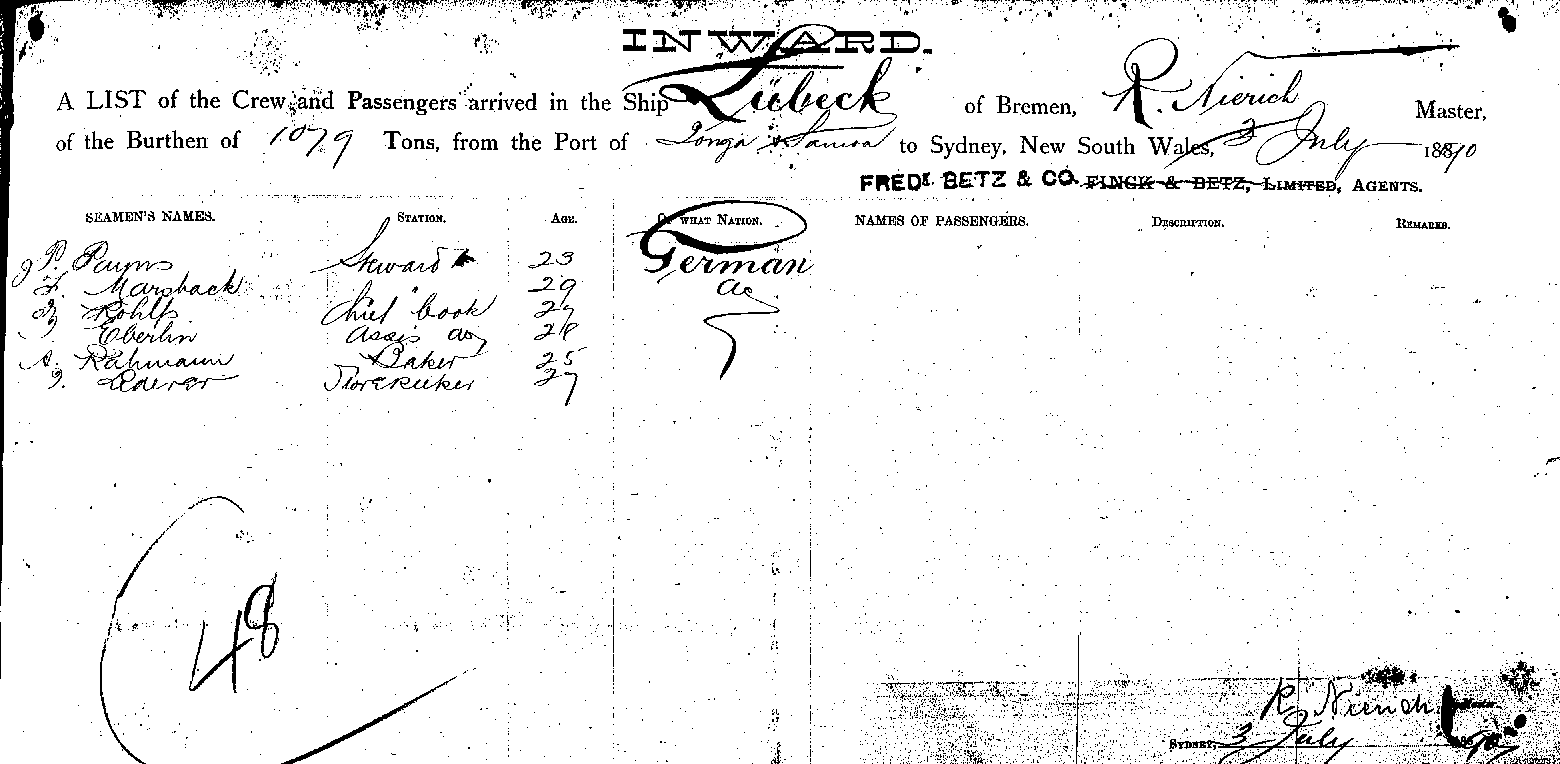 INWARD.
A LIST of the Crew and Passengers arrived in the Ship Lübeck of Bremen, R. Nierich Master,
of the Burthen of 1079 Tons, from the Port of Tonga & Samoa to Sydney, New South Wales, 3 July 1890
FREDK. BETZ & CO. FINCK & BETZ, LIMITED, AGENTS.
SEAMEN'S NAMES. STATION. AGE. OF WHAT NATION. NAMES OF PASSENGERS. DESCRIPTION. REMARKS.
P. Payns Steward 23 German
Marsback " 29 do
Rohlfs Chief Cook 27
Eberlin Assis do 28
A. Rahmann Baker 25
Lederer Storekeeker 27
48
R. Nierich
SYDNEY, 3 July 1890